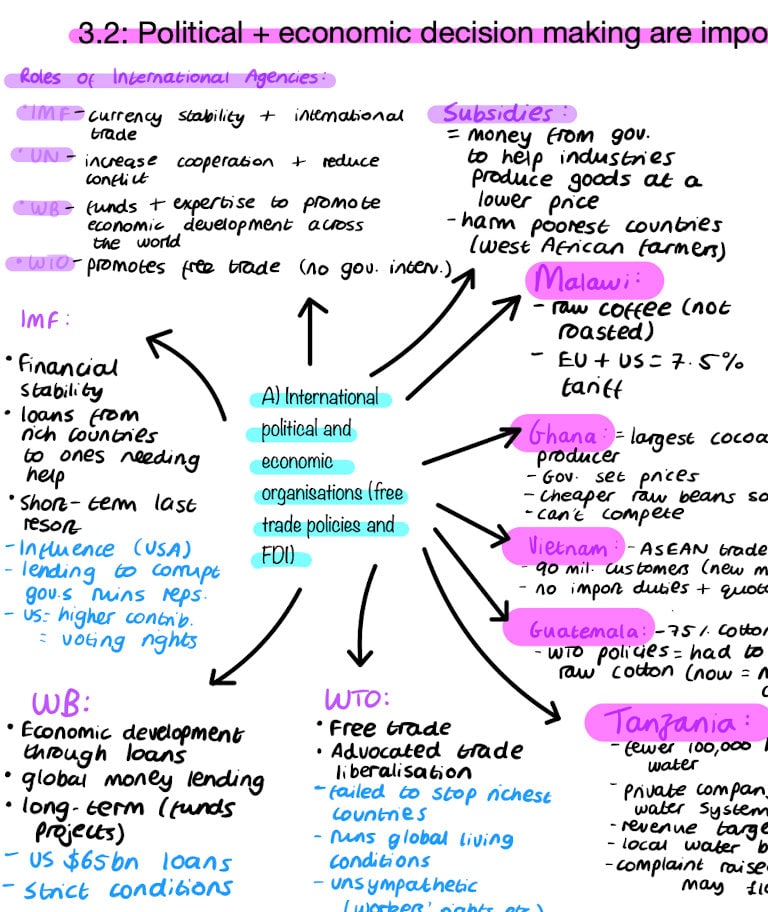 3.2: Political + economic decision making are impo
Roles of International Agencies:
•IMF - currency stability + international
trade
•UN - increase cooperation + reduce
conflict
•WB - funds + expertise to promote
economic development across
the world
•WTO - promotes free trade (no gov. interv.)
Subsidies:
= money from gov.
to help industries
produce goods at a
lower price
- harm poorest countries
(west African farmers)
Malawi:
- raw coffee (not
roasted)
- EU + US = 7.5%
tariff
IMF:
• Financial
stability
• loans from
rich countries
to ones needing
help
• Short-term last
resort
- Influence (USA)
- lending to corrupt
gov.s ruins reps.
- US = higher contrib.
= voting rights
A) International
political and
economic
organisations (free
trade policies and
FDI)
Ghana: = largest cocoa
producer
- Gov. set prices
- cheaper raw beans so
- can't compete
Vietnam: - ASEAN trade
- 90 mil. customers (new m
- no import duties + quot
Guatemala: - 75% cotton
- WTO policies = had to
raw cotton (now =
WB:
• Economic development
through loans
• global money lending
• long-term (funds
projects)
- US $65bn loans
- strict conditions
WTO:
• Free trade
• Advocated trade
liberalisation
- failed to stop richest
countries
- runs global living
conditions
- unsympathetic
(workers' rights etc.)
Tanzania:
- fewer 100,000
water
- private compan
water system
- revenue targe
- local water b
- complaint raise
may